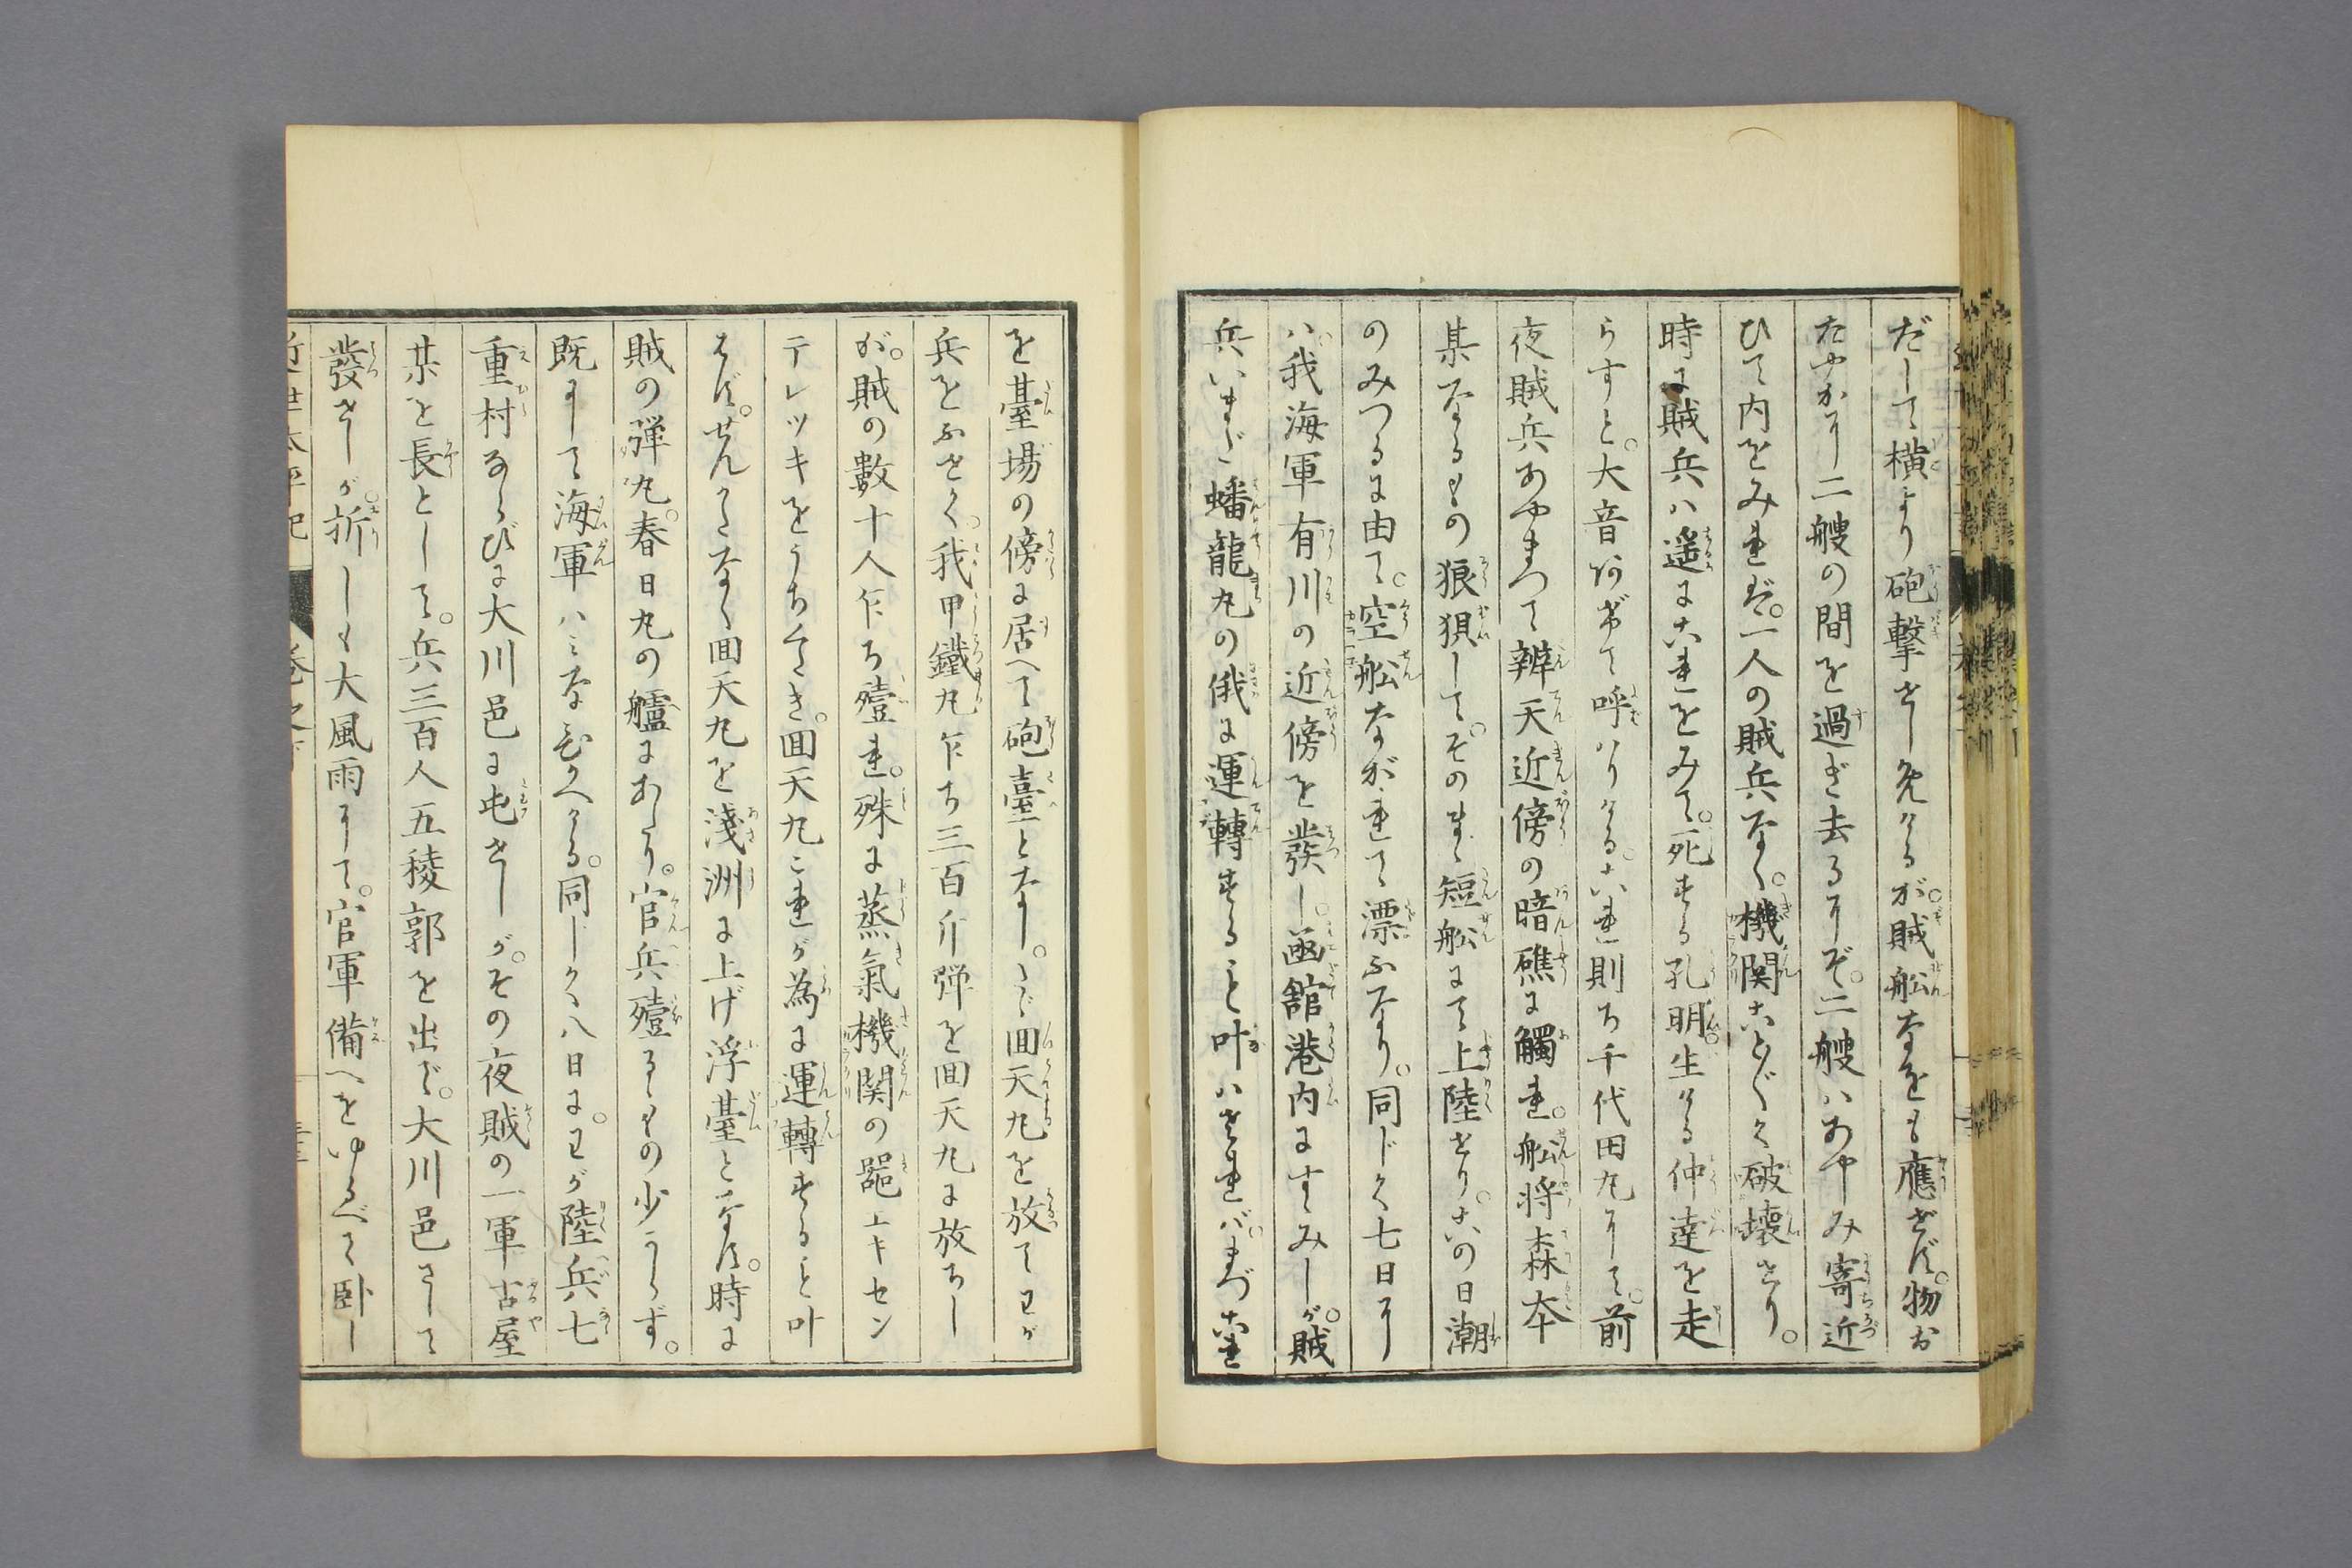 だして横より砲撃せしめけるが。賊船なをも應ぜず。物お
だやかに二艘の間を過ぎ去るにぞ。二艘ハあやみ寄近
ひて内をみれバ。一人の賊兵なく。機関こと〴〵く破壊せり。
時に賊兵ハ遥にこれをみて。死せる孔明。生ける仲達を走
らすと。大音あげて呼ハりける。これ則ち千代田丸にして。前
夜賊兵あやまつて辨天近傍の暗礁に觸れ。船将森本
某なるもの狼狽して。そのまゝ短船にて上陸せり。この日潮
のみつるに由て。空船ながれて漂ふなり。同じく七日に
ハ。我海軍有川の近傍を發し。函舘港内にすゝみしが。賊
兵いまだ蟠龍丸の俄に運轉すること叶ハざれバ。まづこれ
を臺場の傍に居へて砲臺となし。たゞ回天丸を放てわが
兵をふせぐ。我甲鐵丸乍ち三百斤弾を回天丸に放ちし
が。賊の數十人乍ち殪れ。殊に蒸氣機関の噐エキセン
テレッキをうちくだき。回天丸これが為に運轉すること叶
はず。せんかたなく回天丸を淺洲に上げ浮臺となす。時に
賊の弾丸。春日丸の艫にあたり。官兵殪るゝもの少からず。
既にして海軍ハみなひきける。同じく八日に。わが陸兵七
重村ならびに大川邑に屯せしが。その夜賊の一軍古屋
某を長として。兵三百人五稜郭を出で。大川邑さして
發せしが。折しも大風雨にて。官軍備へをゆるべて臥し
近世太平記　巻之下